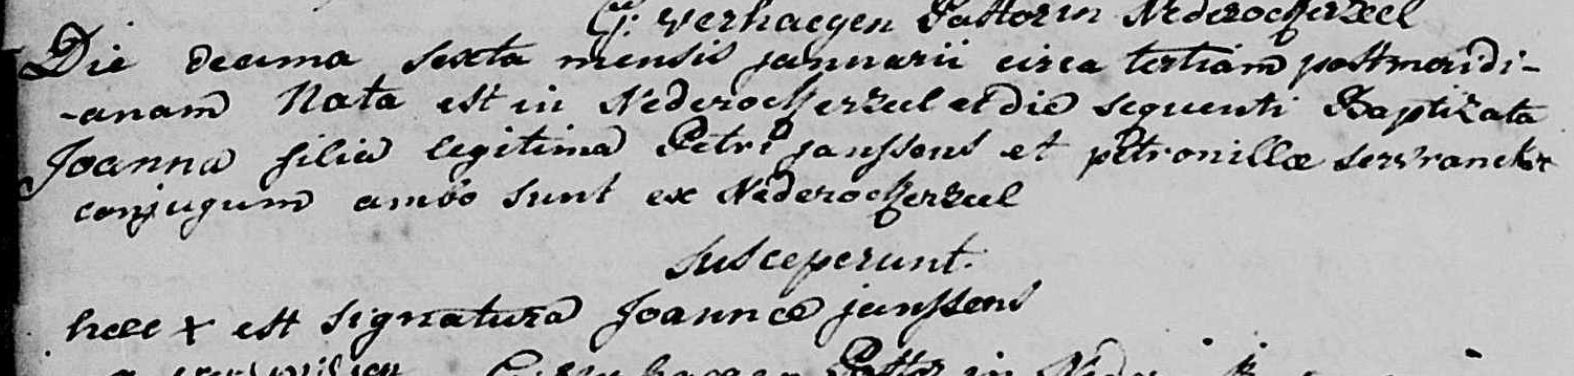 G: Verhaegen Pastor in Nederockerzeel
Die decima sexta mensis januarii circa tertiam postmeridi-
-anam Nata est in Nederockerzeel et die sequenti Baptizata
Joanna filia legitima Petri janssens et petronillæ servranckx
conjugum ambo sunt ex Nederockerzeel
susceperunt.
haec x est signatura Joannæ janssens
Pastor in